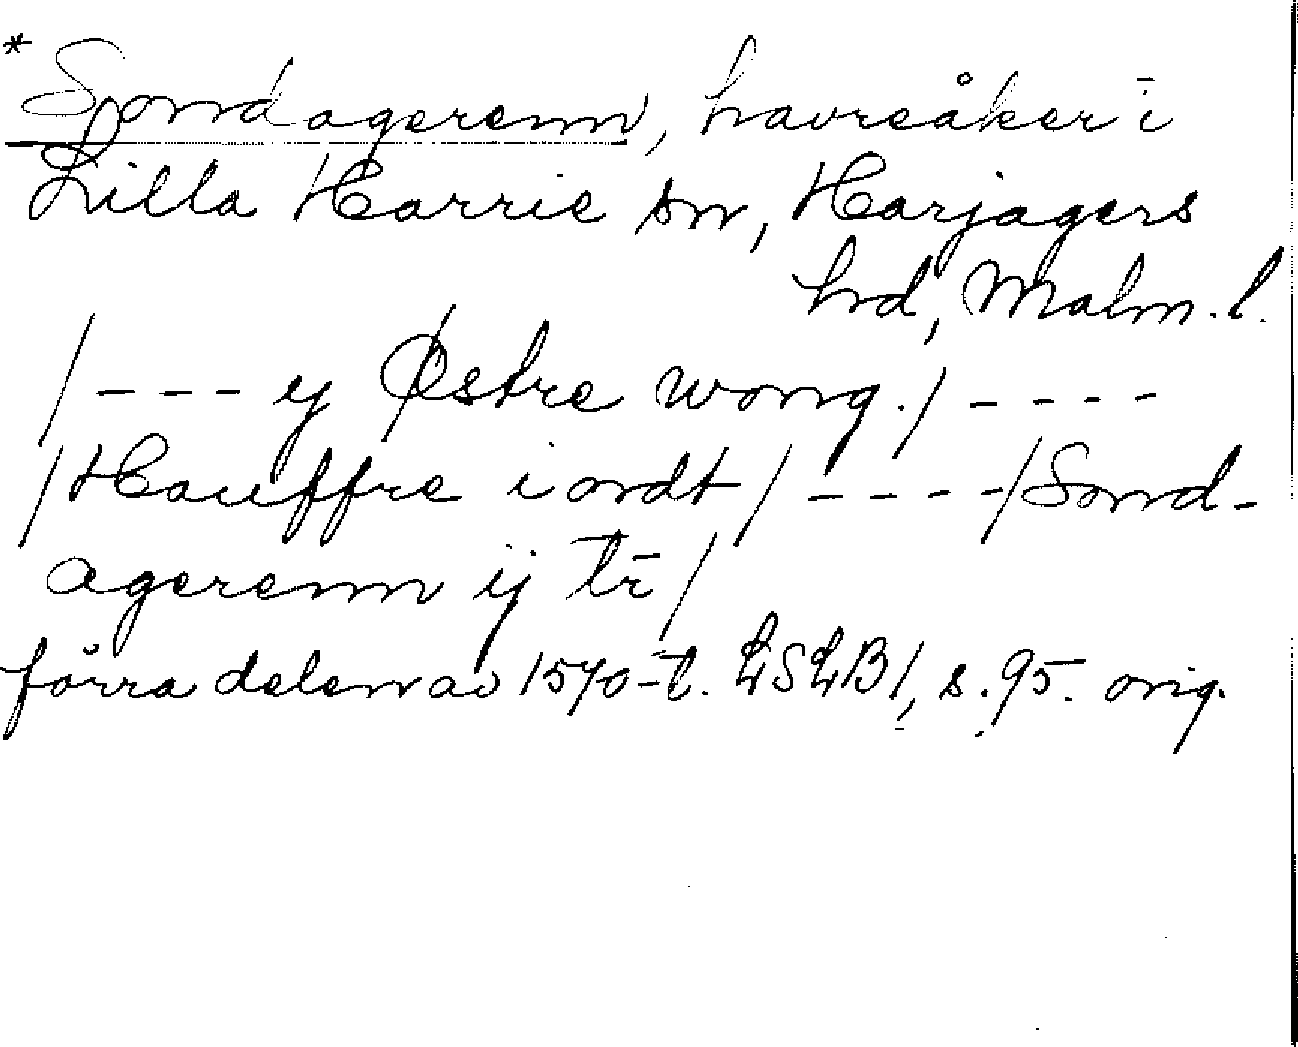 * Sondagerenn, havreåker i
Lilla Harrie sn, Harjagers
hd, Malm. l.
/ - - - y Østre wong. / - - - -
/ Hauffre iordt / - - - - / Sond-
agerenn ij tr̄ /
förra delen av 1570-t. LSLB 1, s. 95. orig.